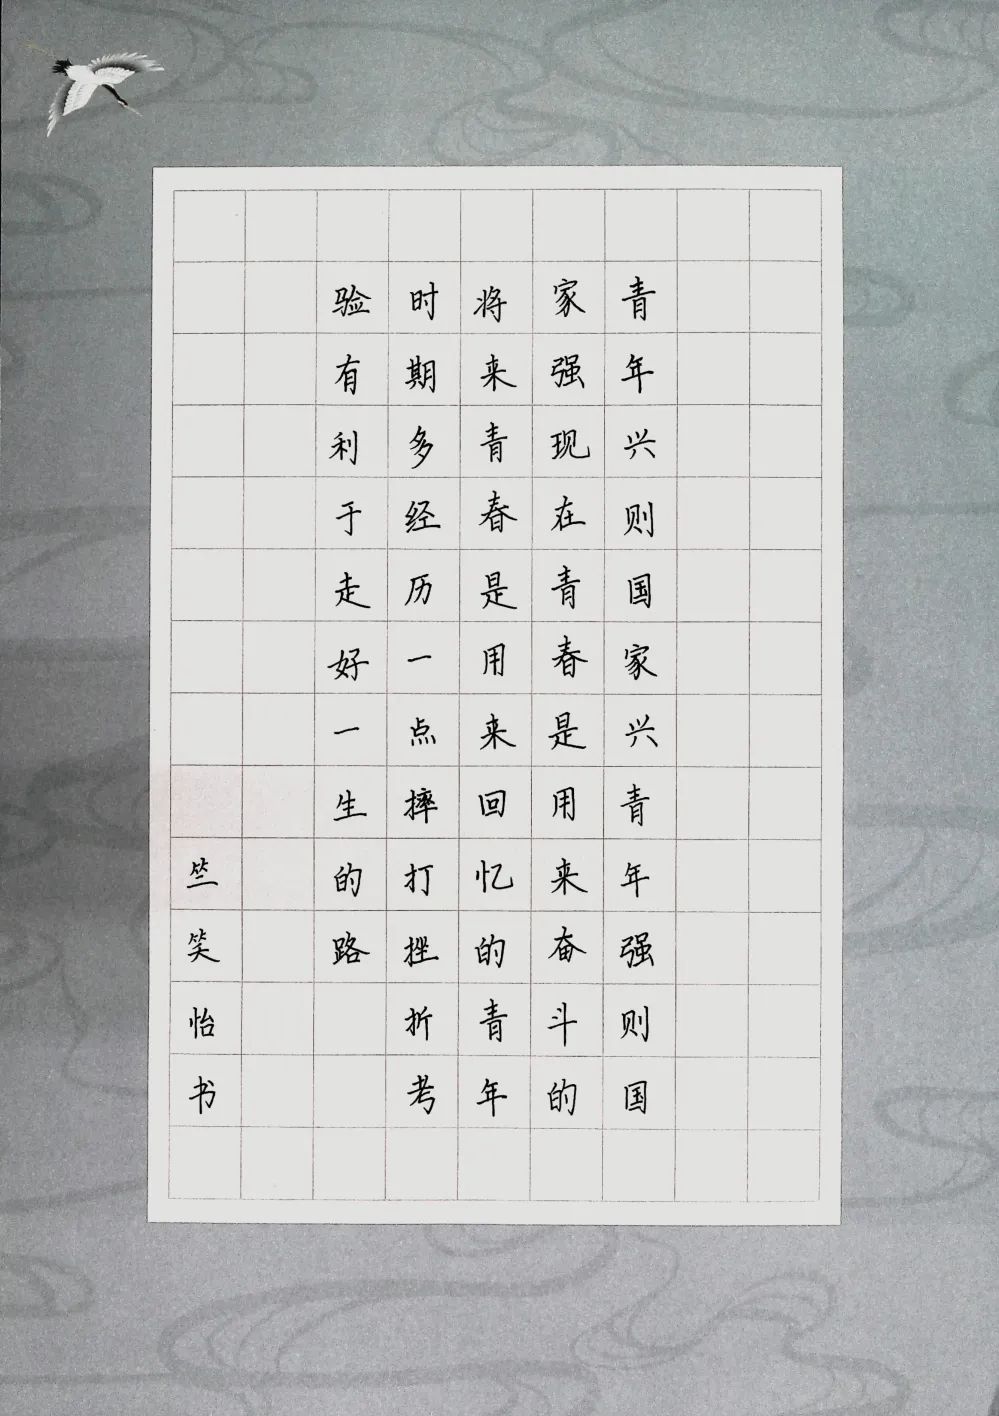 青年兴则国家兴青年强则国
家强现在青春是用来奋斗的
将来青春是用来回忆的青年
时期多经历一点摔打挫折考
验有利于走好一生的路
竺笑怡书